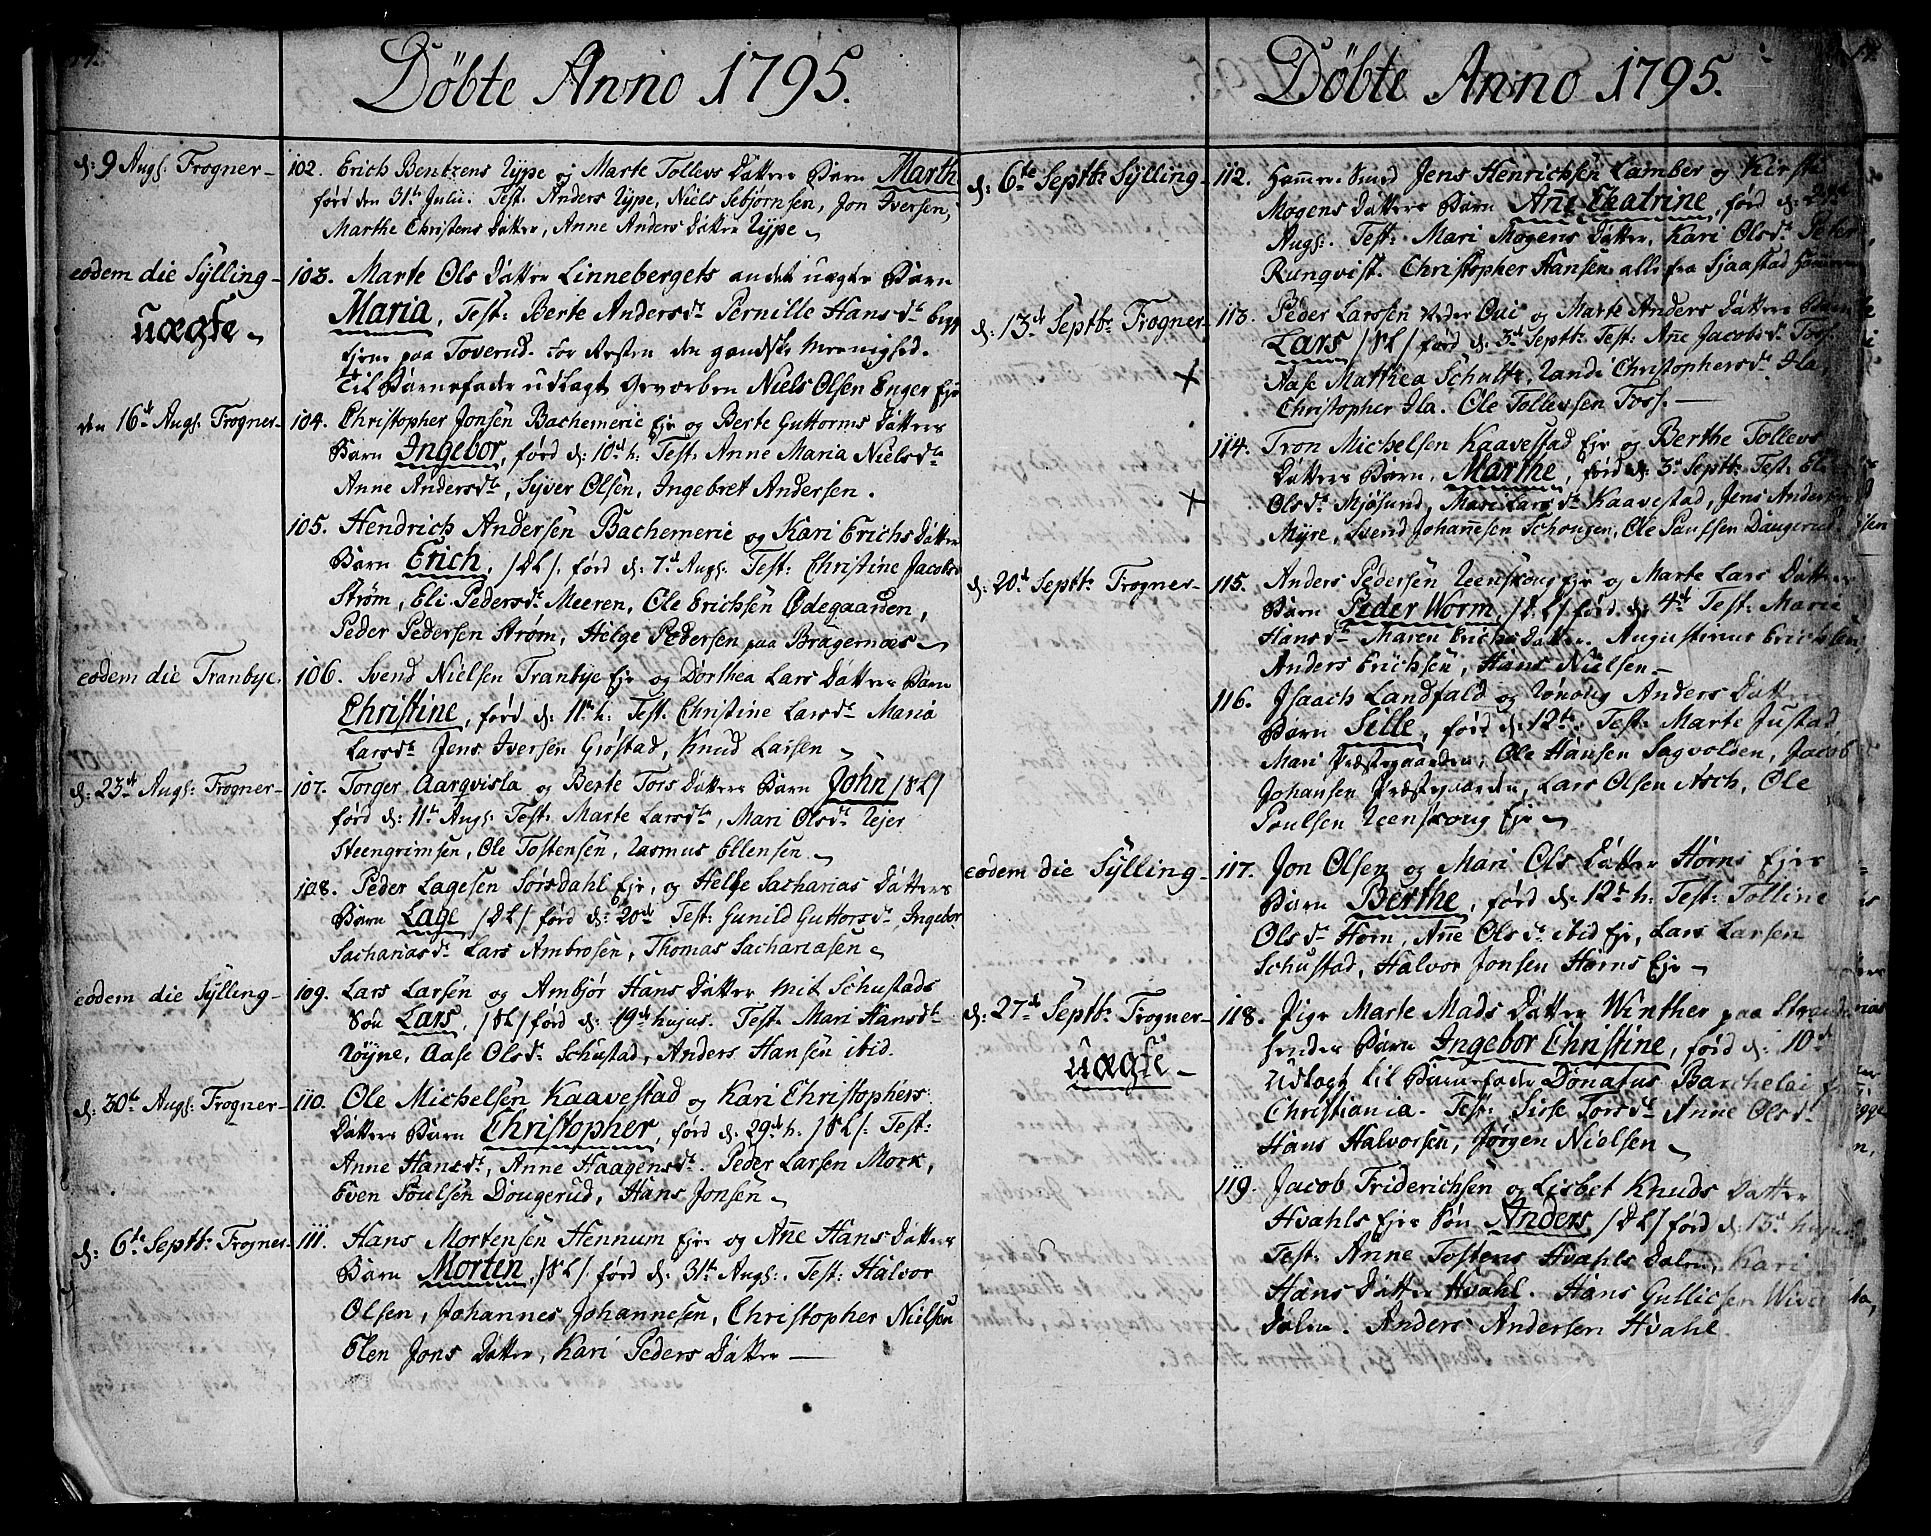 Döbte Anno 1795.
d: 9 Augs: Frogner- 102. Erich Bentzens Rype og Marte Tollevs Datters Barn Marth
förd den 31te Julii. Test: Anders Rype, Niels Sebjörnsen, Jon Iversen,
Marthe Christens Datter, Anne Anders Datter Rype
eodem die Sylling- 103. Marte Ols Datter Linnebergets andet uægte Barn
uægte Maria, Test: Berte Andersdr Pernille Hansdr begge
tjene paa Toverud. for Resten den gandske Menighed.
til Barnefader udlagt Gevorben Niels Olsen Enger Eje
den 16de Augs: Frogner- 104. Christopher Jonsen Bachemeric Eje og Berte Guttorms Datters
Barn Ingebor, förd d: 10de h: Test: Anne Maria Nielsdr
Anne Andersdr, Syver Olsen, Ingebret Andersen.
105. Hendrich Andersen Bachemeric og Kari Erichs Datters
Barn Erich, /DL/. förd d: 7de Augs: Test: Christine Jacobsd
Ström, Eli Pedersdr Meeren, Ole Erichsen Ödegaarden,
Peder Pedersen Ström, Helge Pedersen paa Bragernæs
eodem die Tranbye. 106. Svend Nielsen Tranbye Eje og Dorthea Lars Datters Barn
Christine, förd d: 11te h: Test: Christine Larsdr Maria
Larsdr Jens Iversen Gröstad, Knud Larsen
d: 23de Augs: Frogner- 107. Torger Aarqvisla og Berte Tors Datters Barn John /DL/
förd d: 11te Augs: Test: Marte Larsdr, Mari Olsdr Rejer
Steengrimsen, Ole Tostensen, Rasmus Ellensen
108. Peder Lagesen Sörsdahl Eje, og Helje Sacharias Datters
Barn Lage /DL/ förd d: 20de Test: Gunild Guttorsdr, Ingebor
Sachariasdr Lars Ambrosen, Thomas Sachariasen
eodem die Sylling- 109. Lars Larsen og Ambjör Hans Datter mit Schustads
Sön Lars, /DL/ förd d: 19de hujus. Test: Mari Hansdr
Röyne, Aase Olsdr Schustad, Anders Hansen ibid.
d: 30te Augs: Frogner- 110. Ole Michelsen Kaavestad og Kari Christophers
Datters Barn Christopher, förd d. 29de h. /DL/: Test:
Anne Hansdr, Anne Haagensdr. Peder Larsen Mork,
Even Poulsen Dougerud, Hans Jonsen
d: 6te Septb: Frogner- 111. Hans Mortensen Hennum Eje og Añe Hans Datters
Barn Morten, /DL/ förd d: 31te Augs:. Test: Halvor
Olsen, Johannes Johannesen, Christopher Nielsen
Elen Jons Datter, Kari Peders Datter
Döbte Anno 1795.
d: 6te Septb: Sylling- 112. Hammer Smed Jens Henrichsen Lamber og Kirsti
Mogens Datters Barn Añe Chatrine, förd d:
Augs:. Test: Mari Mogens Datter, Kari Olsdr Peter
Runqvist. Christopher Hansen alle fra Sjaastad Hammer
d: 13de Septb: Frogner- 113. Peder Larssen Neder Oui og Marte Anders Datters Barn
Lars /DL/ förd d: 3de Septb: Test: Añe Jacobsdr Toss.
Aase Matthea Schultz, Randi Christophersdr Ila
Christopher Ila. Ole Tollevsen Toss.
114. Tron Michelsen Kaavestad Eje og Berthe Tollevs
Datters Barn, Marthe, förd d: 3de Septb: Test: Eli
Olsdr Mjösund, Mari Larsdr Kaavestad, Jens Andersen
Myre, Svend Johañesen Schougen, Ole Paulsen Daugerud
d: 20de Septb: Frogner- 115. Anders Pedersen Reenskoug Eje og Marte Lars Datters
Barn Peder Worm, /DL/ förd d: 4de Test: Marie
Hansdr Maren Erichs Datter. Augustinus Erichsen
Anders Erichsen, Hans Nielsen
116. Isaach Landfald og Rönoug Anders Datters
Barn Sille, förd d: 12te. Test: Marte Justad
Mari Præstegaarden, Ole Hansen Sagvolden, Jacob
Johansen Præstegaarden, Lars Olsen Asch, Ole
Poulsen Reenskoug Eje
eodem die Sylling- 117. Jon Olsen og Mari Ols Datter Horns Ejes
Barn Berthe, förd d: 12te h: Test: Tolline
Olsdr Horn, Añe Olsdr ibid Eje, Lars Larsen
Schustad, Halvor Jonsen Horns Eje
d: 27de Septb: Frogner- 118. Pige Marte Mads Datter Winther paa
uægte hendes Barn Ingebor Christine, förd d: 10de
Udlagt til Barnefader Donatus Barthelai
Christiania. Test: Sisse Torsdr Anne Olsdr
Hans Halvorsen, Jörgen Nielsen
119. Jacob Friderichsen og Lisbet Knuds Datter
Hvahls Ejes Sön Anders /DL/ förd d: 13de hujus
Test: Anne Tostens Hvahls Dalen, Kari
Hans Datter Hvahl. Hans Gullicsen
Dalen. Anders Andersen Hvahl